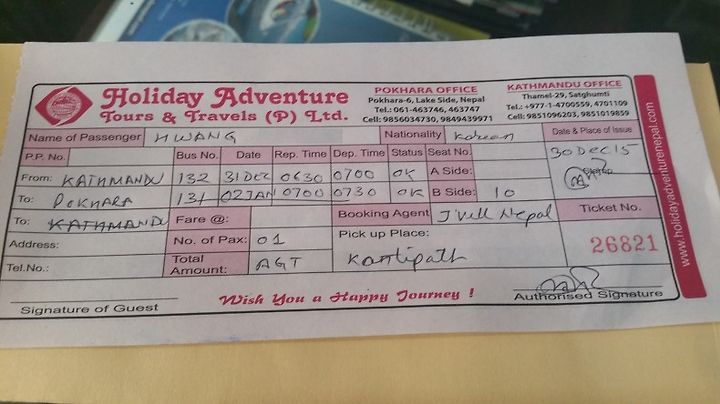 Holiday Adventure
Tours & Travels (P) Ltd.
POKHARA OFFICE
Pokhara-6, Lake Side, Nepal
Tel.: 061-463746, 463747
Cell: 9856034730, 9849439971
KATHMANDU OFFICE
Thamel-29, Satghumti
Tel.: +977-1-4700559, 4701109
Cell: 9851096203, 9851019859
Name of Passenger HWANG Nationality Korean Date & Place of Issue
P.P. No. Bus No. Date Rep. Time Dep. Time Status Seat No. 30 DEC 15
From: KATHMANDU 132 31 DEC 0630 0700 OK A Side:
To: POKHARA 131 02 JAN 0700 0730 OK B Side: 10
To: KATHMANDU Fare @: Booking Agent J'vill Nepal Ticket No.
Address: No. of Pax: 01 Pick up Place: 26821
Tel.No.: Total Amount: AGT Kantipath
Signature of Guest Wish You a Happy Journey ! Authorised Signature
www.holidayadventurenepal.com